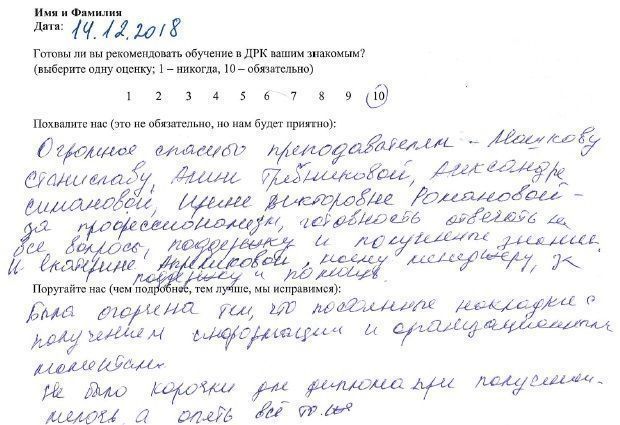 Имя и Фамилия
Дата: 14.12.2018
Готовы ли вы рекомендовать обучение в ДРК вашим знакомым?
(выберите одну оценку; 1 – никогда, 10 – обязательно)
1 2 3 4 5 6 7 8 9 10
Похвалите нас (это не обязательно, но нам будет приятно):
Огромное спасибо преподавателям – Машкову
Станиславу, Анне Гребенниковой, Александре
Симановой, Ирине Викторовне Романовой –
за профессионализм, готовность отвечать на
все вопросы, поддержку и полученные знания
И Екатерине моему менеджеру, за
поддержку и помощь.
Поругайте нас (чем подробнее, тем лучше, мы исправимся):
Была огорчена тем, что постоянные накладки с
получением информации и организационными
моментами.
Не было корочки для диплома при получении –
мелочь, а опять всё